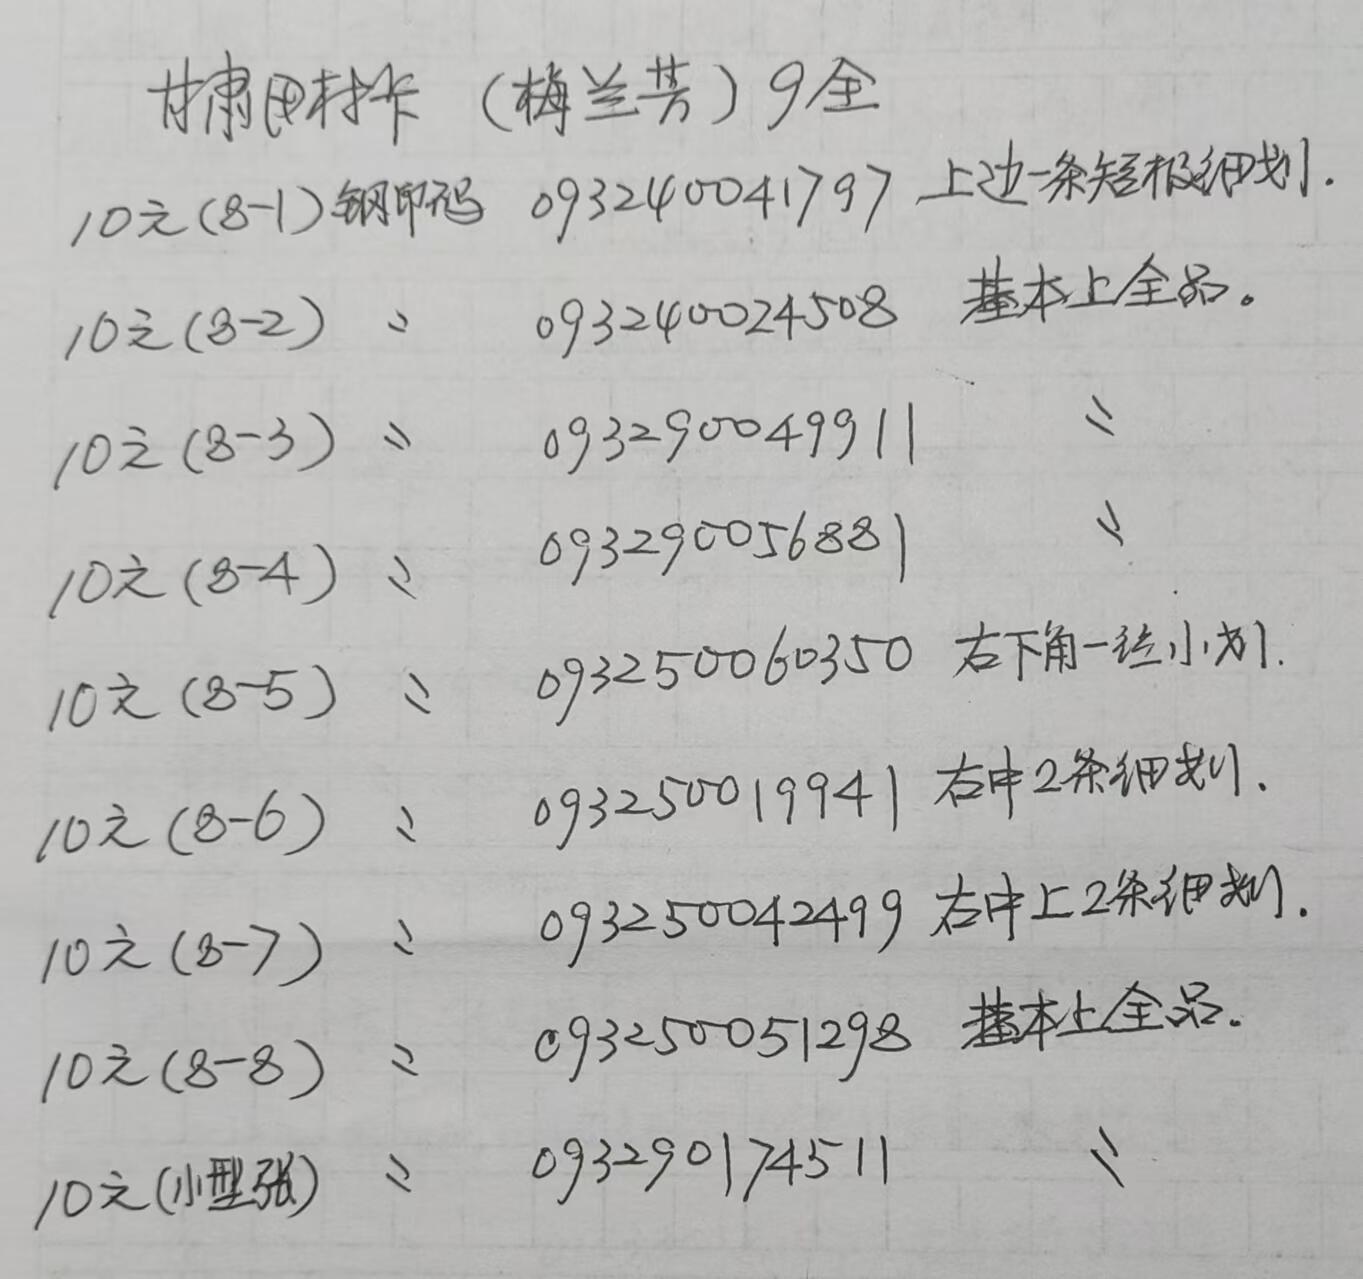 甘肃田村卡（梅兰芳）9全
10元(8-1)钢印码 093240041797 上边一条短极细划.
10元(8-2) 〃 093240024508 基本上全品。
10元(8-3) 〃 093290049911 〃
10元(8-4) 〃 093290056881 〃
10元(8-5) 〃 093250060350 右下角一丝小划.
10元(8-6) 〃 093250019941 右中2条细划.
10元(8-7) 〃 093250042499 右中上2条细划.
10元(8-8) 〃 093250051298 基本上全品.
10元(小型张) 〃 093290174511 〃